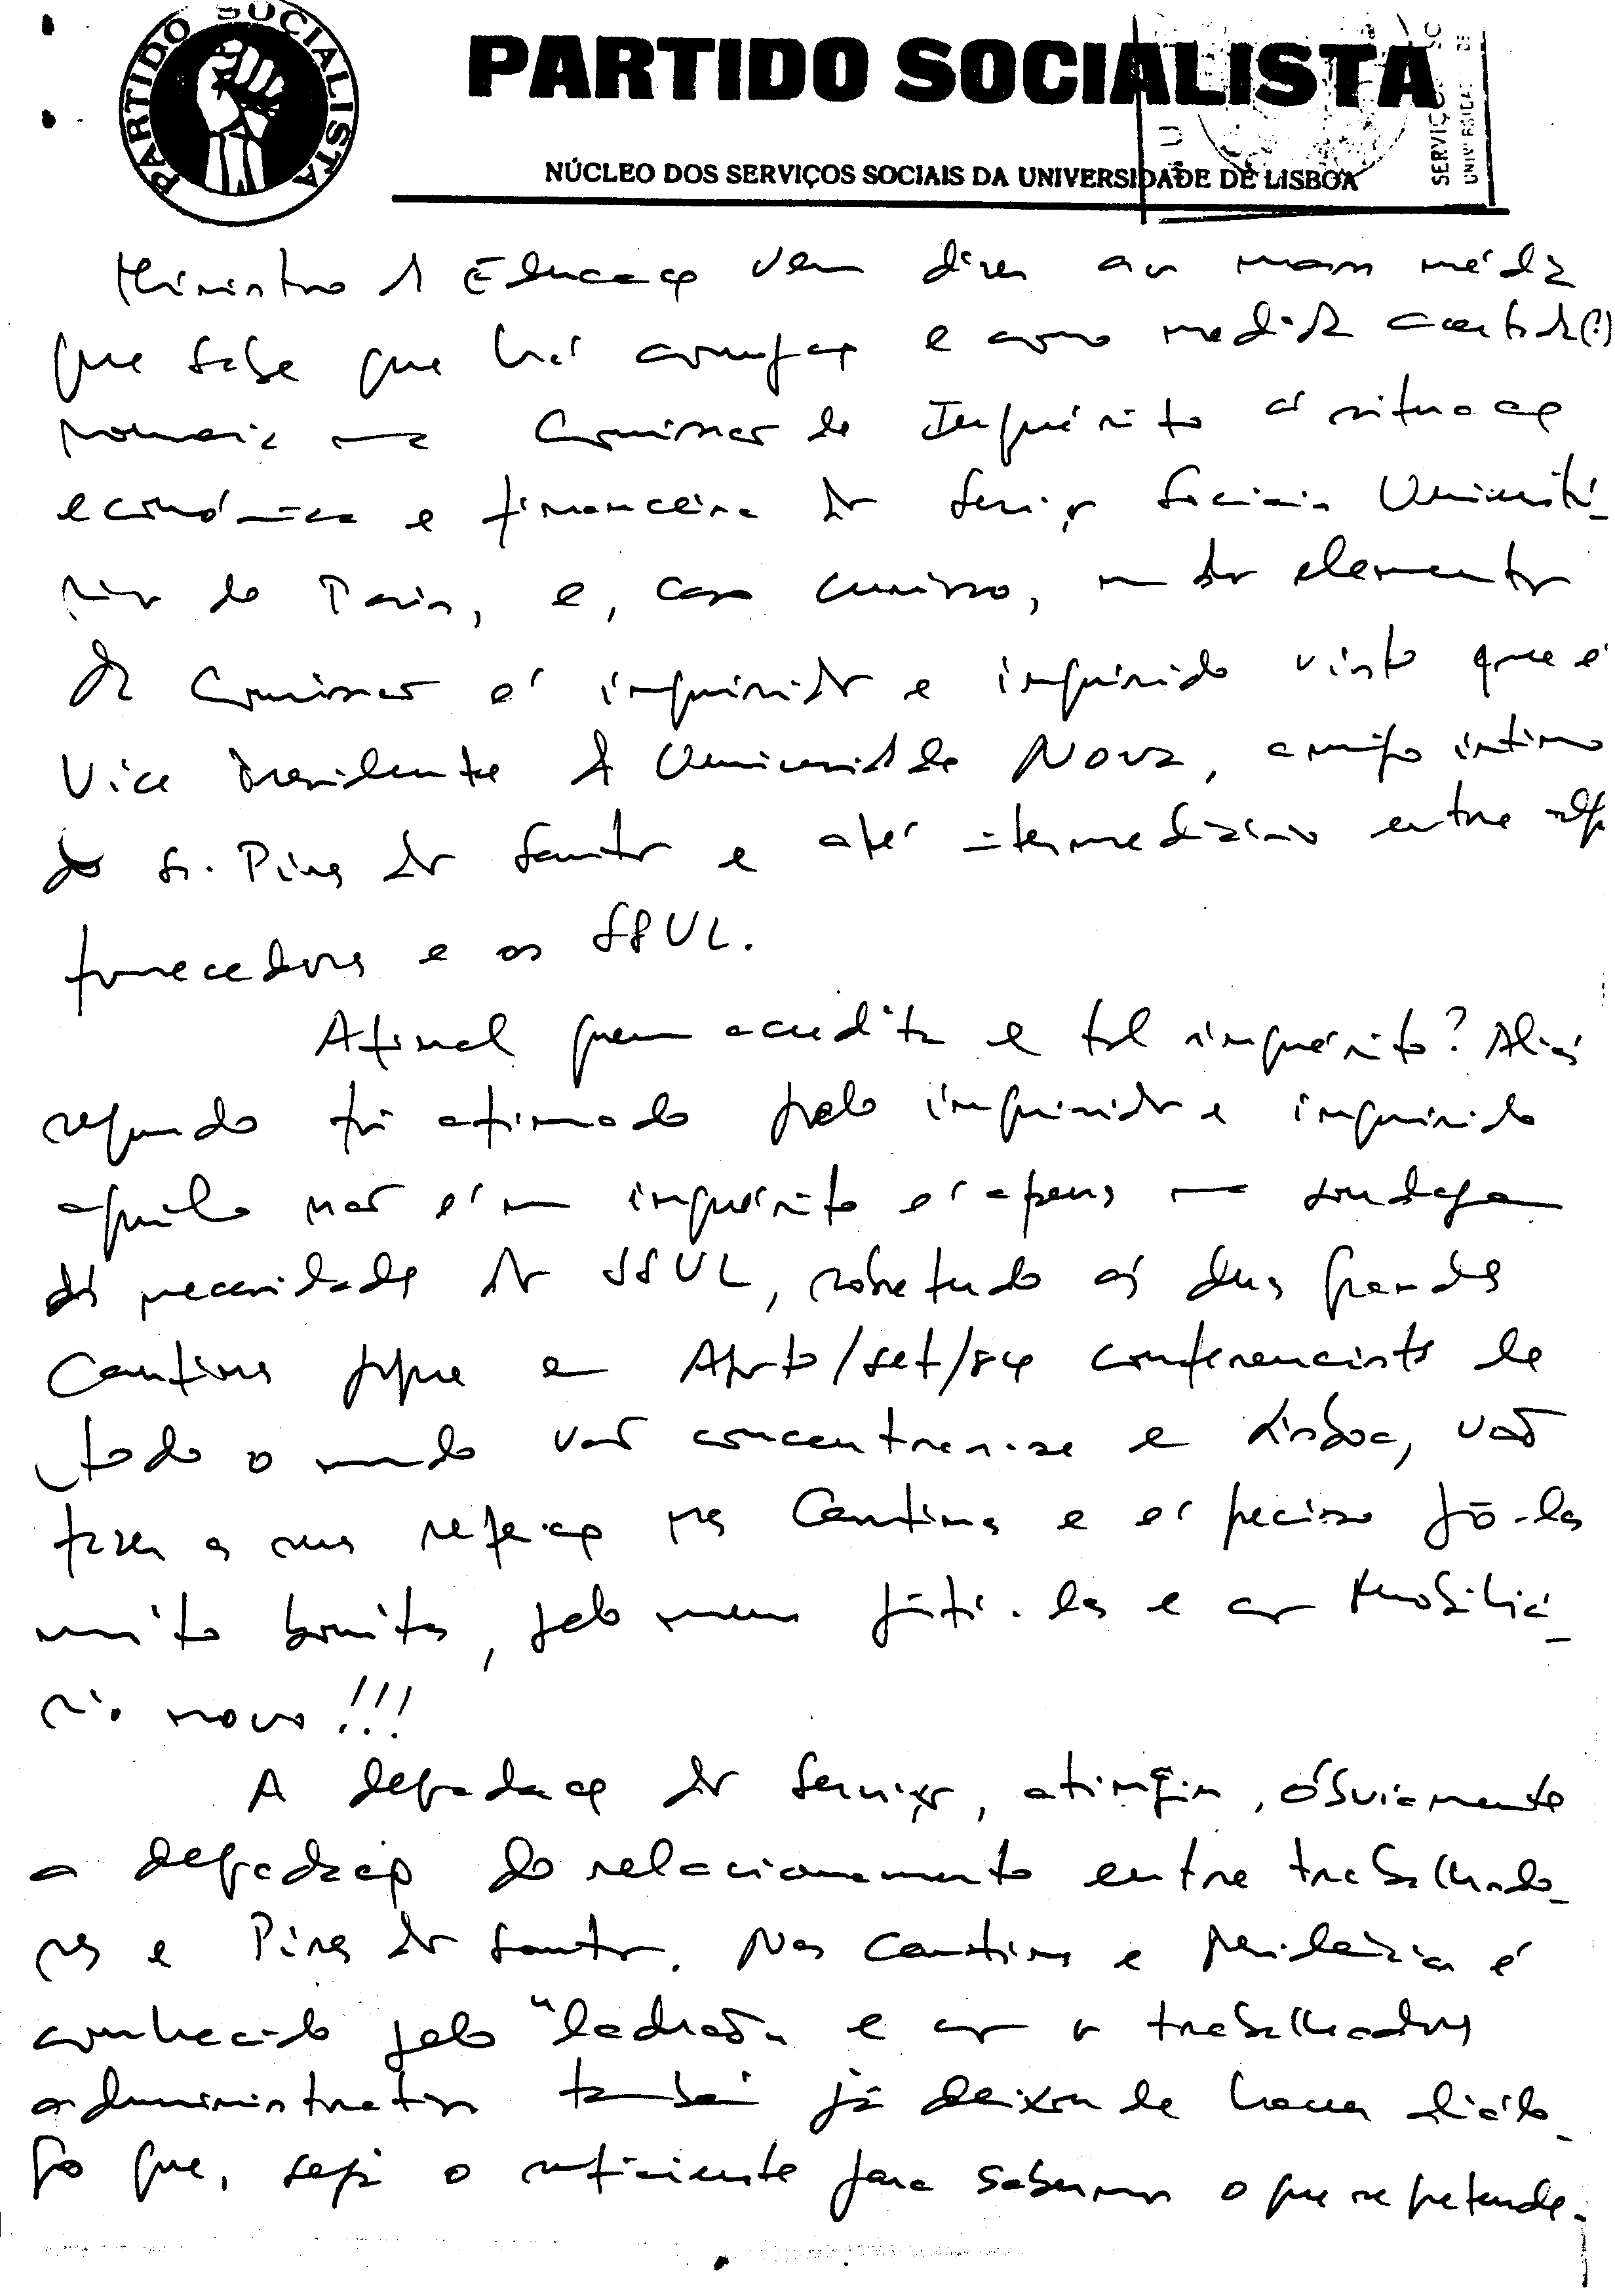 PARTIDO SOCIALISTA
PARTIDO SOCIALISTA
NÚCLEO DOS SERVIÇOS SOCIAIS DA UNIVERSIDADE DE LISBOA
Ministro da Educação vem dizer aos mass média
que sabe que há corrupção e como medida acertada(?)
nomeia uma Comissão de Inquérito à situação
económica e financeira dos Serviços Sociais Universitá-
rios do País, e, caso curioso, um dos elementos
da Comissão é inquiridor e inquirido visto que é
Vice Presidente da Universidade Nova, amigo íntimo
do Sr. Pires dos Santos e até intermediário entre
fornecedores e os SSUL.
Afinal quem acredita em tal inquérito? Aliás
segundo foi afirmado pelo inquiridor e inquirido
aquilo não é um inquérito é apenas uma sondagem
às necessidades dos SSUL, sobretudo às duas grandes
Cantinas porque em Agosto/set/84 conferencistas de
todo o mundo vão concentrar-se em Lisboa, vão
fazer as suas refeições nas Cantinas e é preciso pô-las
muito bonitas, pelo menos pintá-las e com Mobiliá-
rio novo!!!
A degradação dos Serviços, atingiu, óbviamente
a degradação do relacionamento entre trabalhado-
res e Pires dos Santos. Nas Cantinas e Residências é
conhecido pelo "ladrão" e com os trabalhadores
administrativos também já deixou de haver diálo-
go que, seja o suficiente para sabermos o que se pretende.